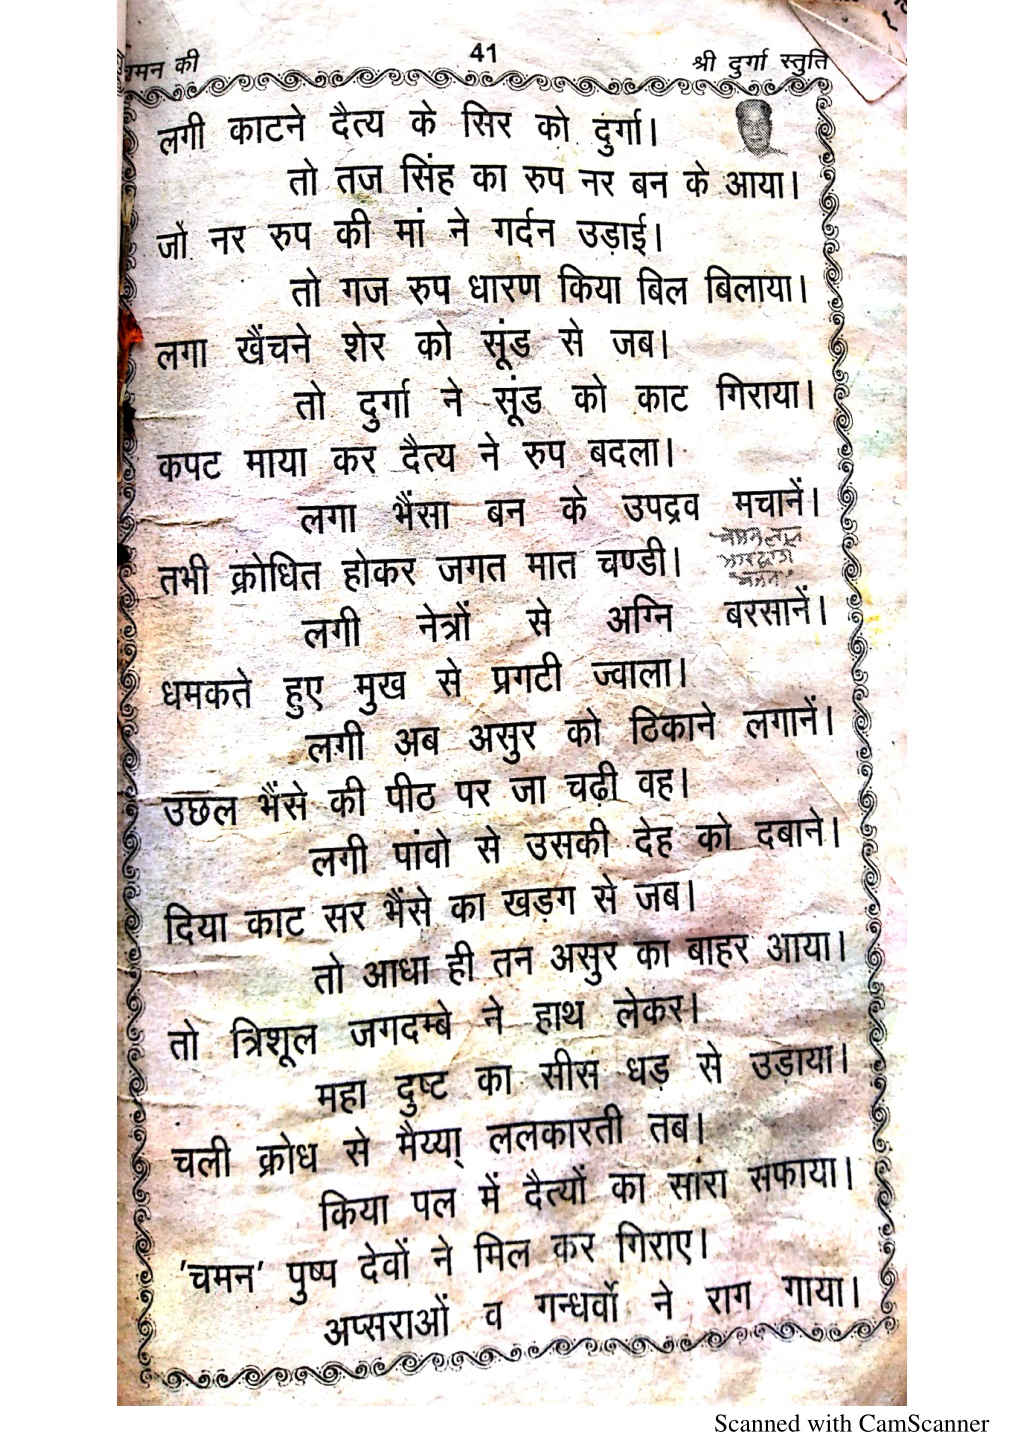 चमन की
41
श्री दुर्गा स्तुति
लगी काटने दैत्य के सिर को दुर्गा।
तो तज सिंह का रुप नर बन के आया।
जो नर रुप की मां ने गर्दन उड़ाई।
तो गज रुप धारण किया बिल बिलाया।
लगा खैंचने शेर को सूंड से जब।
तो दुर्गा ने सूंड को काट गिराया।
कपट माया कर दैत्य ने रुप बदला।
लगा भैंसा बन के उपद्रव मचानें।
तभी क्रोधित होकर जगत मात चण्डी।
लगी नेत्रों से अग्नि बरसानें।
धमकते हुए मुख से प्रगटी ज्वाला।
लगी अब असुर को ठिकाने लगानें।
उछल भैंसे की पीठ पर जा चढ़ी वह।
लगी पांवो से उसकी देह को दबाने।
दिया काट सर भैंसे का खड़ग से जब।
तो आधा ही तन असुर का बाहर आया।
तो त्रिशूल जगदम्बे ने हाथ लेकर।
महा दुष्ट का सीस धड़ से उड़ाया।
चली क्रोध से मैय्या् ललकारती तब।
किया पल में दैत्यों का सारा सफाया।
'चमन' पुष्प देवों ने मिल कर गिराए।
अप्सराओं व गन्धर्वो ने राग गाया।
Scanned with CamScanner